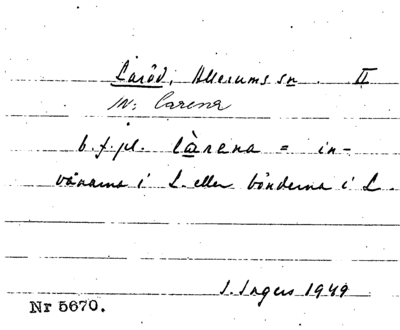 Laröd, Allerums sn. II
In: Larena
b. f. pl. làrena = in-
vånarna i L. eller bönderna i L.
I. Ingers 1949
Nr 5670.